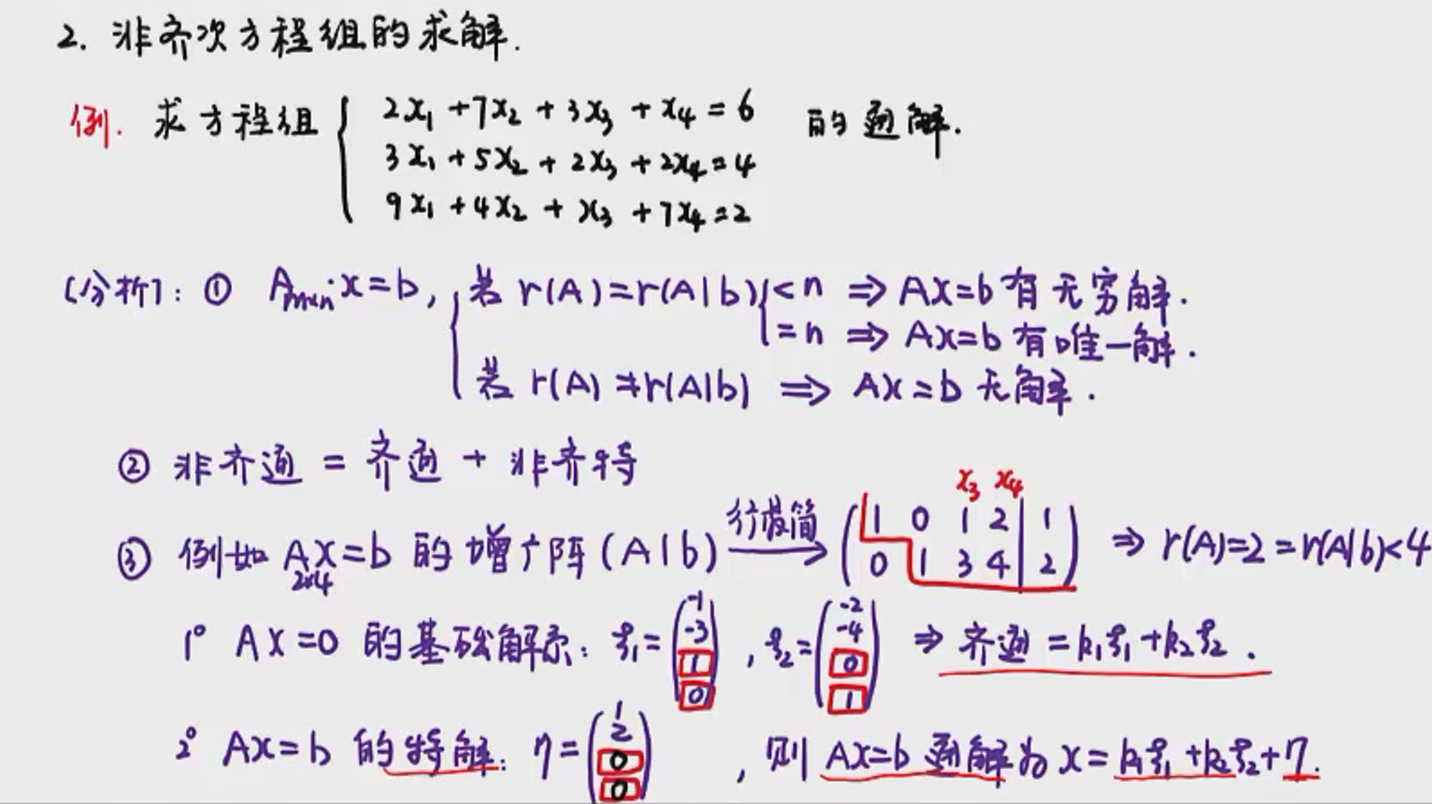 2. 非齐次方程组的求解.
例. 求方程组 { 2x₁+7x₂+3x₃+x₄=6 的通解.
3x₁+5x₂+2x₃+2x₄=4
9x₁+4x₂+x₃+7x₄=2
[分析]: ① Aₘₓₙ·x=b, { 若 r(A)=r(A|b) { <n ⇒ Ax=b 有无穷解.
=n ⇒ Ax=b 有唯一解.
若 r(A)≠r(A|b) ⇒ Ax=b 无解.
② 非齐通 = 齐通 + 非齐特
x₃ x₄
③ 例如 Ax=b 的增广阵(A|b) 行最简 → (1 0 1 2 | 1
0 1 3 4 | 2) ⇒ r(A)=2=r(A|b)<4
2×4
1° Ax=0 的基础解系: ξ₁=(-1 -3 1 0), ξ₂=(-2 -4 0 1) ⇒ 齐通 =k₁ξ₁+k₂ξ₂.
2° Ax=b 的特解: η=(1 2 0 0), 则 Ax=b 通解为 x=k₁ξ₁+k₂ξ₂+η.